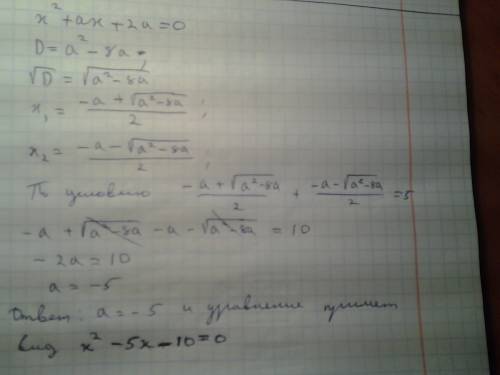 x² + ax + 2a = 0
D = a² - 8a;
√D = √(a² - 8a)
x₁ = (-a + √(a² - 8a))/2;
x₂ = (-a - √(a² - 8a))/2;
По условию (-a + √(a² - 8a))/2 + (-a - √(a² - 8a))/2 = 5
-a + √(a² - 8a) - a - √(a² - 8a) = 10
-2a = 10
a = -5
Ответ: a = -5 и уравнение примет
вид x² - 5x - 10 = 0